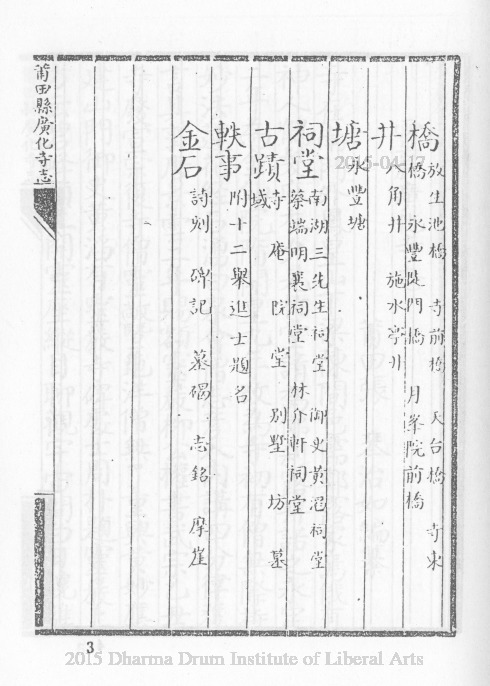 橋 放生池橋 寺前橋 天台橋 寺東
橋 永豐陡門橋 月峯院前橋
井 八角井 施水亭井
塘 永豐塘
祠堂 南湖三先生祠堂 御史黃滔祠堂
蔡端明襄祠堂 林介軒祠堂
古蹟 寺 庵 院 堂 別墅 坊 墓
域
軼事 附十二舉進士題名
金石 詩刻 碑記 墓碣 志銘 摩崖
莆田縣廣化寺志
3
2015-04-17
2015 Dharma Drum Institute of Liberal Arts